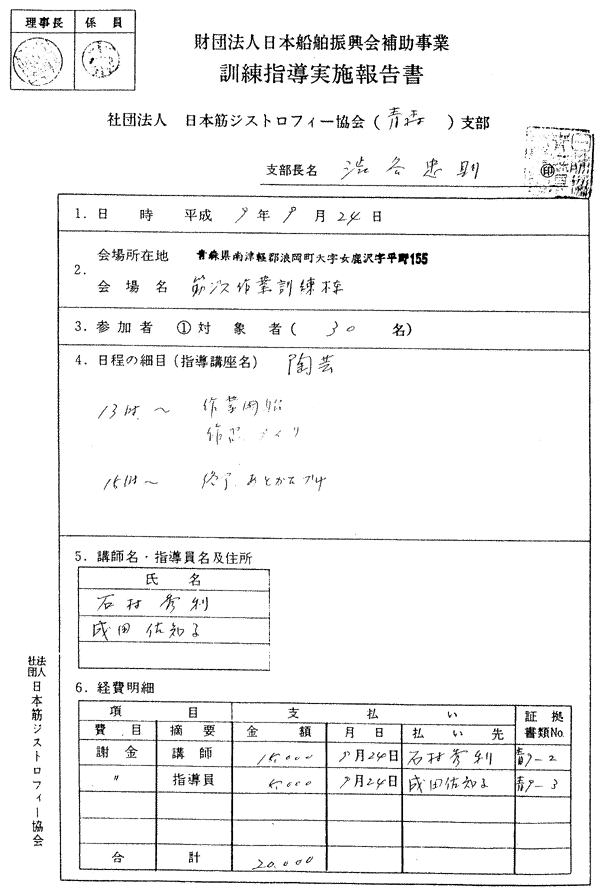 理事長 係員
財団法人日本船舶振興会補助事業
訓練指導実施報告書
社団法人 日本筋ジストロフィー協会(青森)支部
支部長名 渋谷忠則 印
1.日時 平成9年9月24日
2.会場所在地 青森県南津軽郡浪岡町大字女鹿沢字平野155
会場名 筋ジス作業訓練棟
3.参加者 ①対象者(30名)
4.日程の細目(指導講座名) 陶芸
13時~ 作業開始
作品づくり
15時~ 終了 あとかたづけ
5.講師名・指導員名及住所
氏名
石村秀利
成田佐知子
6.経費明細
項目 支払い 証拠書類No.
費目 摘要 金額 月日 払い先
謝金 講師 15,000 9月24日 石村秀利 青9-2
〃 指導員 5,000 9月24日 成田佐知子 青9-3
合計 20,000
社団法人 日本筋ジストロフィー協会